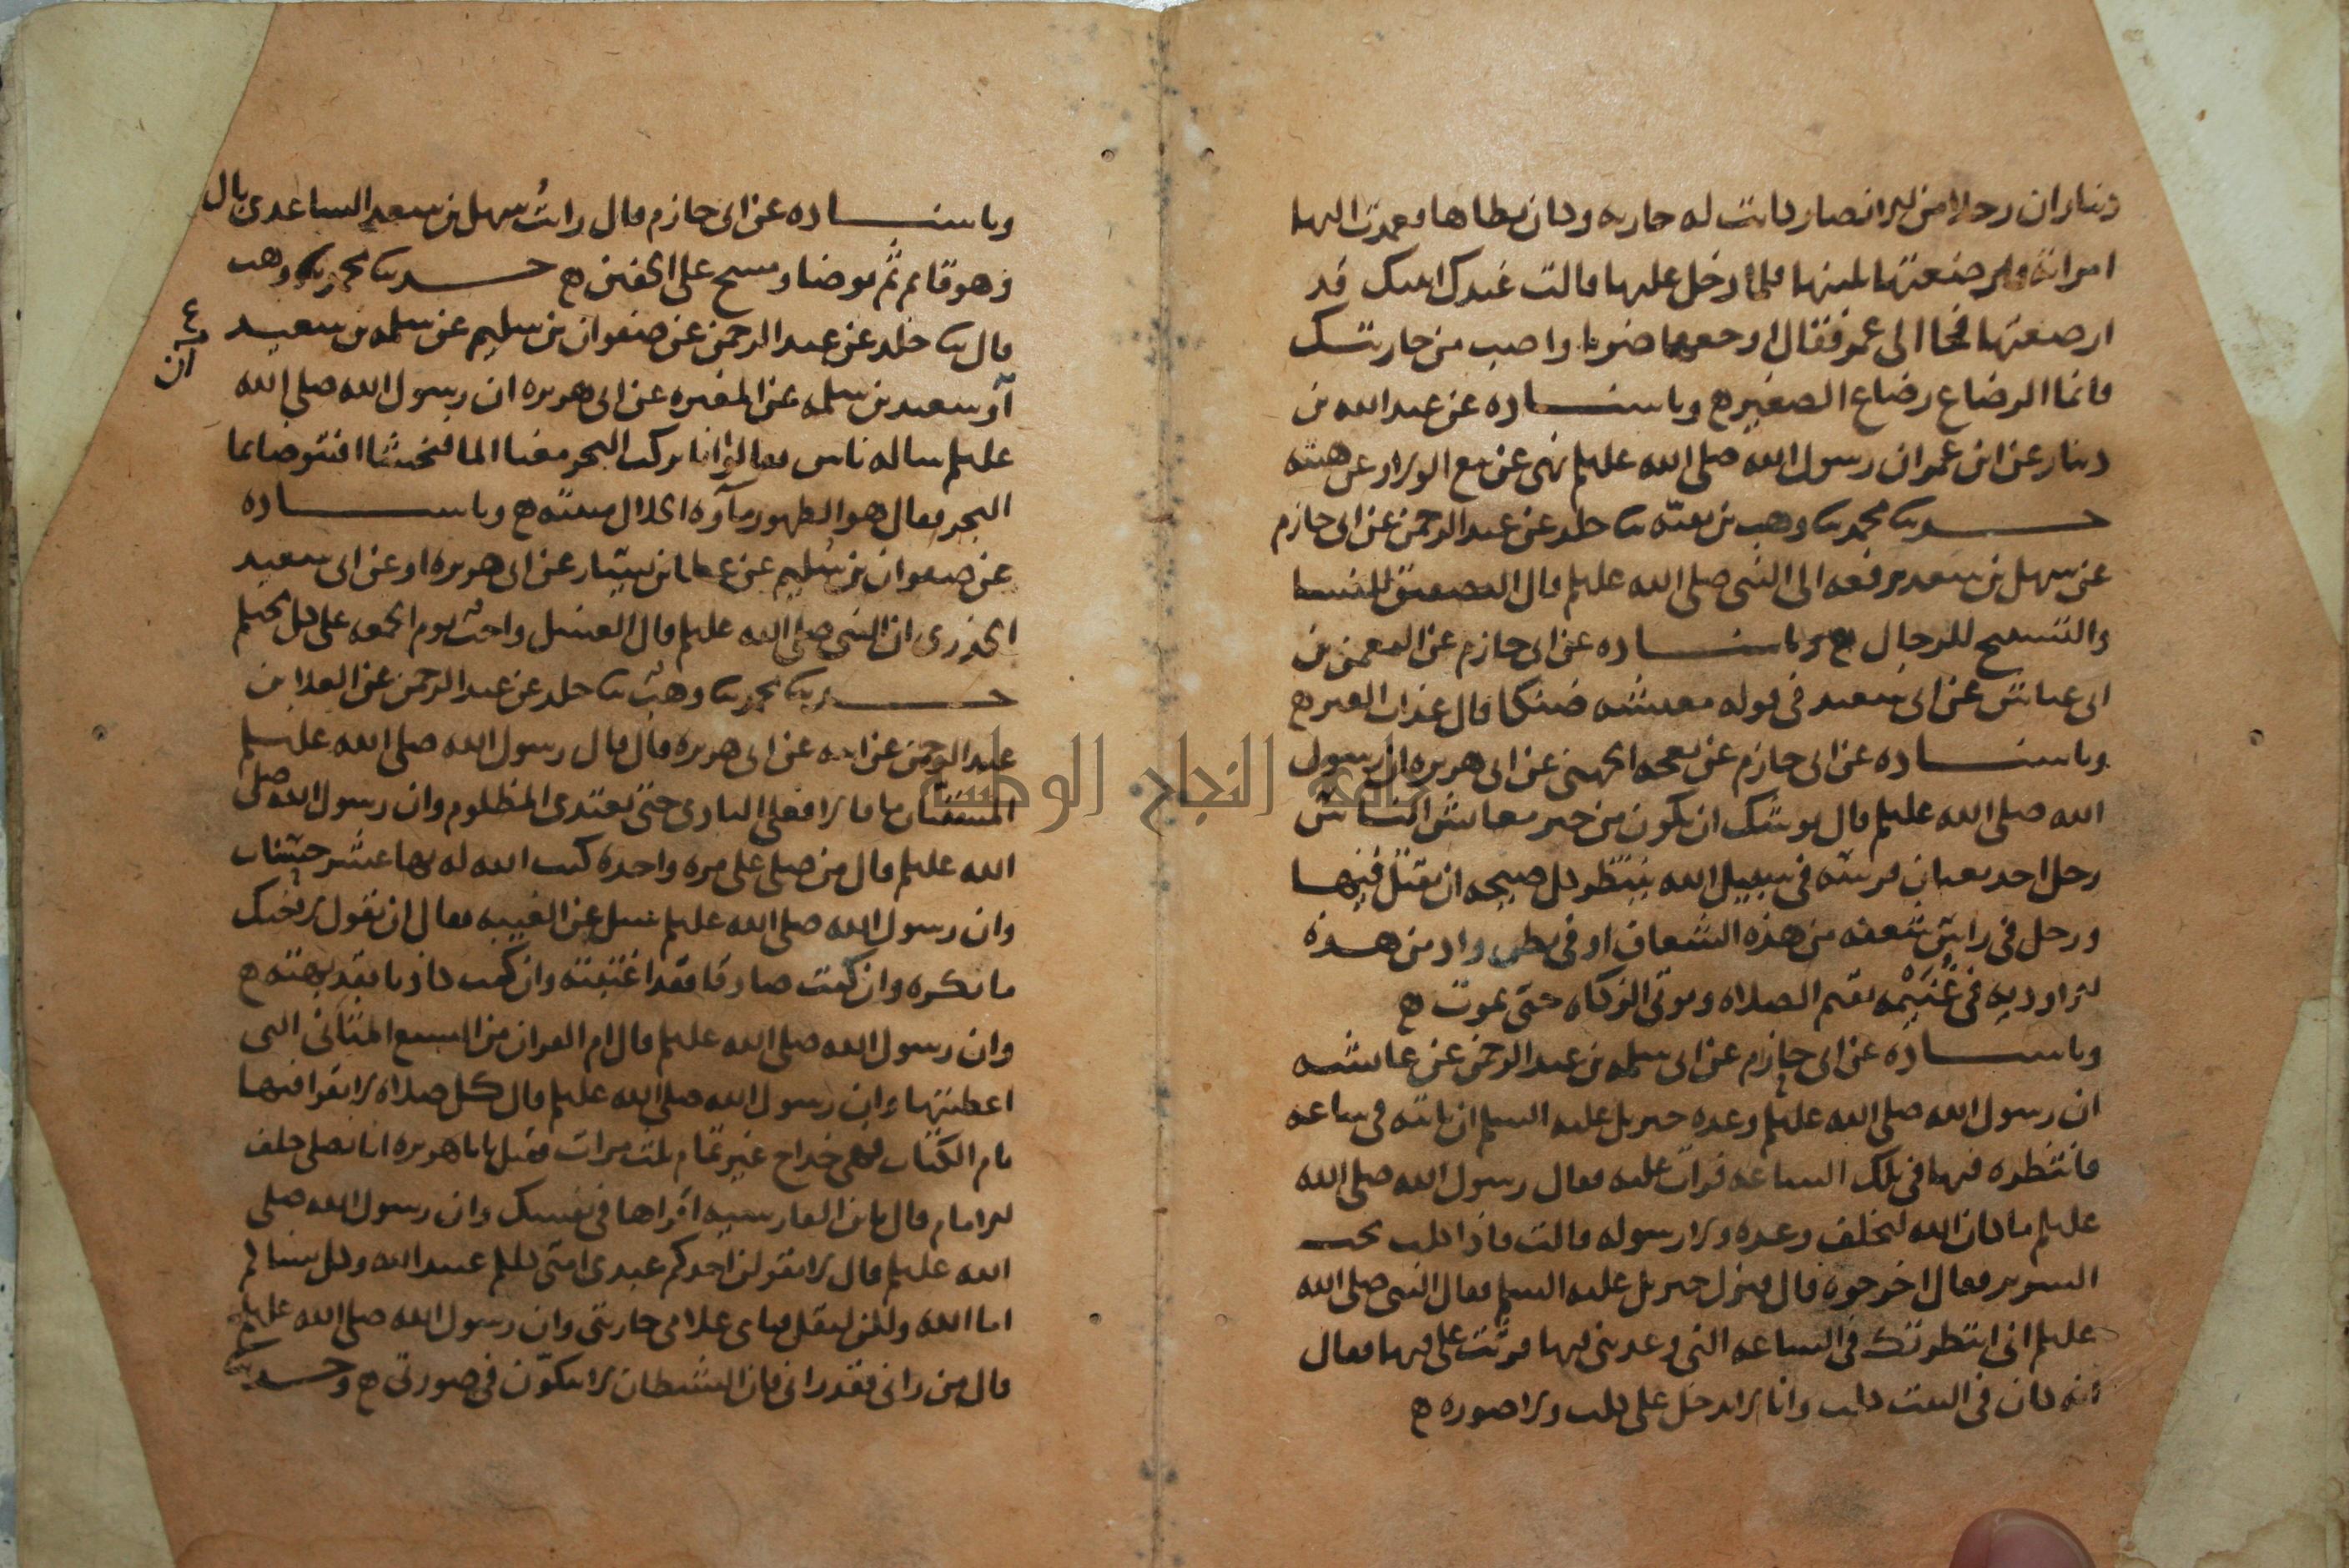 دينار ان رجلا من الانصار كانت له جاريه وكان يطاها فعمدت اليها
امراته فارضعتها لبنها فلما دخل عليها قالت عندك اليك قد
ارضعتها فجا الى عمر فقال ارجعها ضربا واصب من جاريتك
فانما الرضاع رضاع الصغير ه وباسناده عن عبد الله بن
دينار عن ابن عمر ان رسول الله صلى الله عليه وسلم نهى عن بيع الولا وعن هبته
حدثنا محمد ثنا وهب بن بقيه ثنا خلد عن عبد الرحمن عن ابى حازم
عن سهل بن سعد يرفعه الى النبى صلى الله عليه وسلم قال التصفيق للنسا
والتسبيح للرجال ه وباسناده عن ابى حازم عن النعمن بن
ابى عياش عن ابى سعيد فى قوله معيشه ضنكا قال عذاب القبر ه
وباسناده عن ابى حازم عن بعجه الجهنى عن ابى هريره ان رسول
الله صلى الله عليه وسلم قال يوشك ان يكون من خير معايش الناس
رجل احد بعنان فرسه فى سبيل الله ينتظر كل صيحه ان يقتل فيها
ورجل فى راس شعفه من هذه الشعاف او فى بطن واد من هذه
الاوديه فى غنيمه يقيم الصلاه ويوتى الزكاه حتى يموت ه
وباسناده عن ابى حازم عن ابى سلمه بن عبد الرحمن عن عايشه
ان رسول الله صلى الله عليه وسلم وعده جبريل عليه السلم ان ياتيه فى ساعه
فانتظره فيها فى تلك الساعه فراث عليه فقال رسول الله صلى الله
عليه وسلم ما كان الله ليخلف وعده ولا رسوله قالت فاذا كلب تحت
السرير فقال اخرجوه قال فنزل جبريل عليه السلم فقال النبى صلى الله
عليه وسلم انى انتظرتك فى الساعه التى وعدتنى فيها فرثت على فيها فقال
انه كان فى البيت كلب وانا لا ندخل على كلب ولا صوره ه
وباسناده عن ابى حازم قال رايت سهل بن سعد الساعدى بال
وهو قايم ثم توضا ومسح على الخفين ه حدثنا محمد ثنا وهب
قال ثنا خلد عن عبد الرحمن عن صفوان بن سليم عن سلمه بن سعيد
او سعيد بن سلمه عن المغيره عن ابى هريره ان رسول الله صلى الله
عليه وسلم ساله ناس فقالوا انا نركب البحر معنا الما فنحتنا افنتوضا بما
البحر فقال هو الطهور ماوه الحلال ميتته ه وباسناده
عن صفوان بن سليم عن عطا بن يسار عن ابى هريره او عن ابى سعيد
الخدرى ان النبى صلى الله عليه وسلم قال الغسل واجب يوم الجمعه على كل محتلم
حدثنا محمد ثنا وهب ثنا خلد عن عبد الرحمن عن العلا بن
عبد الرحمن عن ابيه عن ابى هريره قال قال رسول الله صلى الله عليه وسلم
المستبان ما قالا فعلى البادى حتى يعتدى المظلوم وان رسول الله صلى
الله عليه وسلم قال من صلى على مره واحده كتب الله له بها عشر حسنات
وان رسول الله صلى الله عليه وسلم سيل عن الغيبه فقال ان تقول لاخيك
ما يكره وان كنت صادقا فقد اغتبته وان كنت كاذبا فقد بهته ه
وان رسول الله صلى الله عليه وسلم قال ام القران من السبع المثانى التى
اعطيتها وان رسول الله صلى الله عليه وسلم قال كل صلاه لا يقرا فيها
بام الكتاب فهى خداج غير تمام ثلث مرات فقيل يابا هريره انا نصلى خلف
الامام قال يا بن الفارسيه اقراها فى نفسك وان رسول الله صلى
الله عليه وسلم قال لا يقولن احدكم عبدى امتى كلكم عبيد الله وكل نسايكم
اما الله ولكن ليقل فتاى غلامى جاريتى وان رسول الله صلى الله عليه وسلم
قال من رانى فقد رانى فان الشيطان لا يتكون فى صورتى ه وحدثنا
جامعة النجاح الوطنية